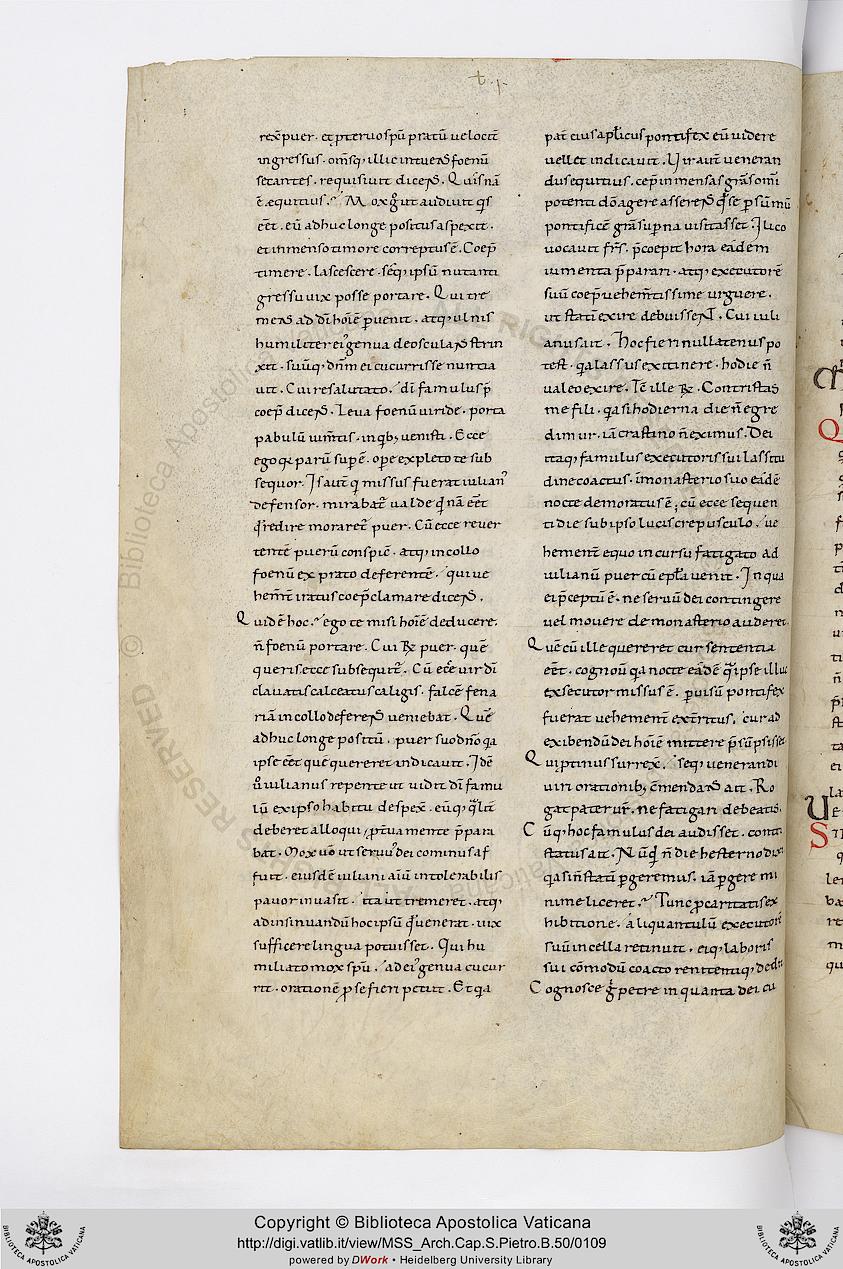 rex̄ puer. et p̱teruo sp̄u pratū uelocit̄
ingressus. om̄sq; illic intuens foenū
secantes. requisiuit dicens. Quisnā
ē ęquitius. Mox g̊ ut audiuit q̇s
eēt. eū adhuc longe positus aspexit.
et inmenso timore correptus ē. Coep̄
timere. lascescere. seq; ipsū nutanti
gressu uix posse portare. Qui tre
mens ad dī hoīē p̱uenit. atq; ulnis
humiliter ei' genua deosculans strin
xit. suūq; dn̄m ei occurrisse nuntia
uit. Cui resalutato. dī famulus p̄
coep̄ dicens. Leua foenū uiride. porta
pabulū ium̄tis. in qib; uenisti. Ecce
ego q̨ parū sup̱ ē. ope expleto te sub
sequor. Is aut̄ q̇ missus fuerat iulian'
defensor. mirabat̄ ualde q̇d nā eēt
q̇d redire moraret̄ puer. Cū ecce reuer
tentē puerū conspic̄. atq; in collo
foenū ex prato deferentē. qui ue
hem̄t iratus coep̄ clamare dicens.
Quid ē hoc. ego te misi hoīē deducere.
n̄ foenū portare. Cui R̄ puer. quē
queris. ecce subsequit̄. Cū ecce uir dī
clauatis calceatus caligis. falcē fena
riā in collo deferens ueniebat. Quē
adhuc longe positū. puer suo dn̄o q̨a
ipse eēt quē quereret indicauit. Idē
u̇ iulianus repente ut uidit dī famu
lū ex ipso habitu despex̄. eūq; q̄lit̄
deberet alloqui. p̱terua mente p̄para
bat. Mox uo ut seruu' dei cominus af
fuit. eiusdē iuliani aīū intolerabilis
pauor inuasit. ita ut tremeret. atq;
ad insinuandū hoc ipsū q̇d uenerat. uix
sufficere lingua potuisset. Qui hu
miliato mox sp̄u. ad ei' genua cucur
rit. orationē p̱ se fieri petiit. Et q̨a
pat̄ eius ap̄licus pontifex eū uidere
uellet indicauit. Uir aut̄ ueneran
dus equitius. cep̄ inmensas grās om̄i
potenti dō agere asserens q̇d se p̱ sūmū
pontificē grā sup̱na uisitasset. Ilico
uocauit frs̄. p̄coepit hora eadem
iumenta p̄parari. atq; executorē
suū coep̄ uehem̄tissime urguere.
ut statī exire debuissent. Cui iuli
anus ait. Hoc fieri nullatenus po
test. q̨a lassus ex itinere. hodie n̄
ualeo exire. Tc̄ ille R̄. Contristas
me fili. q̨a si hodierna die n̄ egre
dimur. iā crastino n̄ eximus. Dei
itaq; famulus executoris sui lassitu
dine coactus. ī monasterio suo eadē
nocte demoratus ē; cū ecce sequen
ti die sub ipso lucis crepusculo. ue
hement̄ equo in cursu fatigato ad
iulianū puer cū epl̄a uenit. In qua
ei p̄ceptū ē. ne seruū dei contingere
uel mouere de monasterio auderet.
Quē cū ille quereret cur sententia
eēt. cognoū q̨a nocte eadē q̄ ipse illuc
exsecutor missus ē. p̱ uisū pontifex
fuerat uehement̄ ext̄ritus. cur ad
exibendū dei hoīē mittere p̄sūpsisset
Qui ptinus surrex̄. seq; uenerandi
uiri orationib; cm̄endans ait. Ro
gat pater ur̄. ne fatigari debeatis.
Cūq; hoc famulus dei audisset. cont
status ait. N ūq̇d n̄ die hesterno dixi
q̨a si n̄ statī p̱geremus. iā p̱gere mi
nime liceret. Tunc p̱ caritatis ex
hibitione. aliquantulū executorē
suū in cella retinuit. eiq; laboris
sui cōmodū coacto renitentiq; dedit
Cognosce g̊ petre in quanta dei cu
Copyright © Biblioteca Apostolica Vaticana
http://digi.vatlib.it/view/MSS_Arch.Cap.S.Pietro.B.50/0109
powered by DWork • Heidelberg University Library